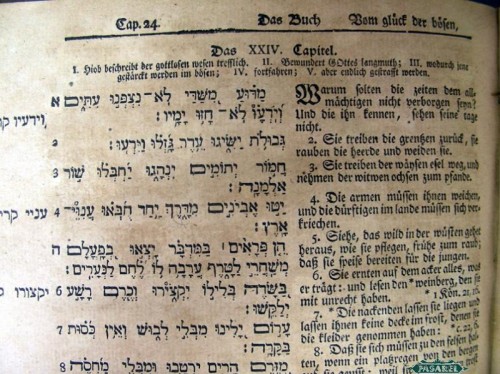 Cap. 24.
Das Buch
Vom glück der bösen,
Das XXIV. Capitel.
I. Hiob beschreibt der gottlosen wesen trefflich. II. Bewundert GOttes langmuth; III. wodurch jene
gestärckt werden im bösen; IV. fortfahren; V. aber endlich gestrafft werden.
א מַדּוּעַ מִשַּׁדַּי לֹא־נִצְפְּנוּ עִתִּים
וְיֹדְעָו לֹא־חָזוּ יָמָיו׃
2 גְּבֻלוֹת יַשִּׂיגוּ עֵדֶר גָּזְלוּ וַיִּרְעוּ׃
3 חֲמוֹר יְתוֹמִים יִנְהָגוּ יַחְבְּלוּ שׁוֹר
אַלְמָנָה׃
4 יַטּוּ אֶבְיֹנִים מִדָּרֶךְ יַחַד חֻבְּאוּ עֲנְוֵי
אָרֶץ׃
ה הֵן פְּרָאִים בַּמִּדְבָּר יָצְאוּ בְּפָעֳלָם
מְשַׁחֲרֵי לַטָּרֶף עֲרָבָה לוֹ לֶחֶם לַנְּעָרִים׃
6 בַּשָּׂדֶה בְּלִילוֹ יִקְצֹירוּ וְכֶרֶם רָשָׁע
יְלַקֵּשׁוּ׃
7 עָרוֹם יָלִינוּ מִבְּלִי לְבוּשׁ וְאֵין כְּסוּת
בַּקָּרָה׃
8 מִזֶּרֶם הָרִים יִרְטָבוּ וּמִבְּלִי מַחְסֶה
וידעיו
עניי
יקצורו
Warum solten die zeiten dem all-
mächtigen nicht verborgen seyn?
Und die ihn kennen, sehen seine tage
nicht.
2. Sie treiben die grentzen zurück, sie
rauben die heerde und weiden sie.
3. Sie treiben der wäysen esel weg, und
nehmen der witwen ochsen zum pfande.
4. Die armen müssen ihnen weichen,
und die dürftigen im lande müssen sich ver-
kriechen.
5. Siehe, das wild in der wüsten gehet
heraus, wie sie pflegen, frühe zum raub;
daß sie speise bereiten für die jungen.
6. Sie ernten auf dem acker alles, was
er trägt: und lesen den *weinberg, den sie
mit unrecht haben. * 1 Kön. 21, 16.
7. * Die nackenden lassen sie liegen und
lassen ihnen keine decke im frost, denen sie
die kleider genommen haben: * c. 22, 6.
8. Daß sie sich müssen zu den felsen halten,
wenn ein platzregen von den bergen
PASAREL